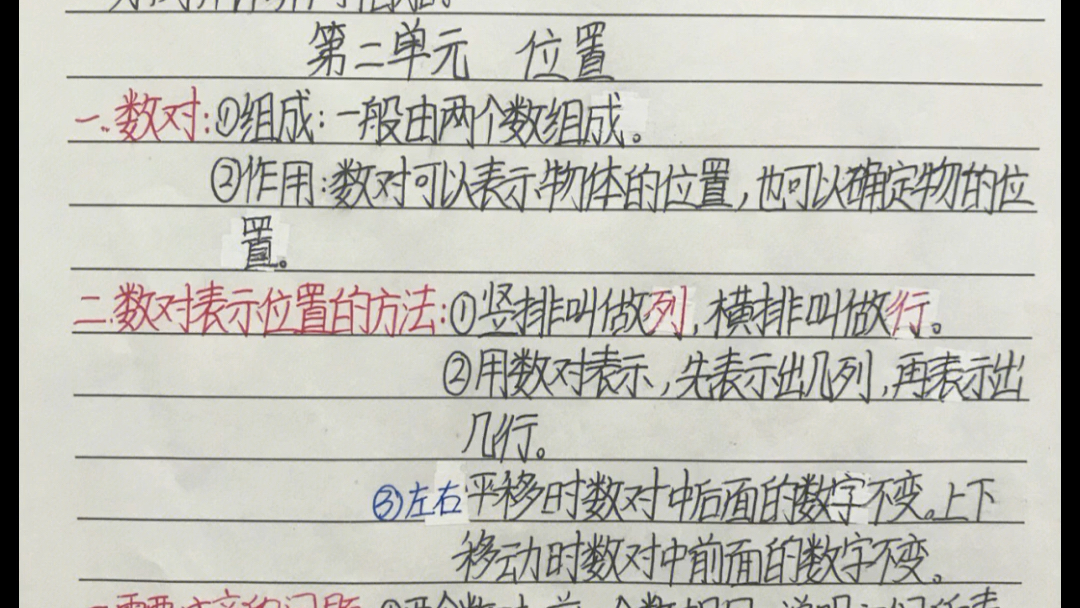 第二单元 位置
一.数对:①组成:一般由两个数组成。
②作用:数对可以表示物体的位置,也可以确定物的位
置。
二.数对表示位置的方法:①竖排叫做列,横排叫做行。
②用数对表示,先表示出几列,再表示出
几行。
③左右平移时数对中后面的数字不变。上下
移动时数对中前面的数字不变。